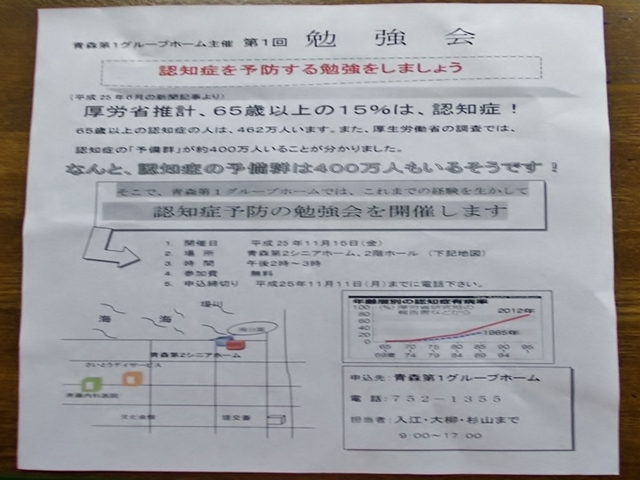 青森第1グループホーム主催 第1回 勉 強 会
認知症を予防する勉強をしましょう
(平成25年6月の新聞記事より)
厚労省推計、65歳以上の15%は、認知症!
65歳以上の認知症の人は、462万人います。また、厚生労働省の調査では、
認知症の「予備群」が約400万人いることが分かりました。
なんと、認知症の予備群は400万人もいるそうです!
そこで、青森第1グループホームでは、これまでの経験を生かして
認知症予防の勉強会を開催します
1. 開催日 平成25年11月15日(金)
2. 場 所 青森第2シニアホーム、2階ホール (下記地図)
3. 時 間 午後2時~3時
4. 参加費 無料
5. 申込締切り 平成25年11月11日(月)までに電話下さい。
堤川
海 海
青森第2シニアホーム
さいとうデイサービス
斉藤内科医院
文化会館
年齢層別の認知症有病率
(%)
2012年
1985年
100
80
60
40
20
0
65 70 75 80 85 90 95
69歳 74 79 84 89 94
申込先:青森第1グループホーム
電 話:752-1355
担当者:入江・大柳・杉山まで
9:00~17:00